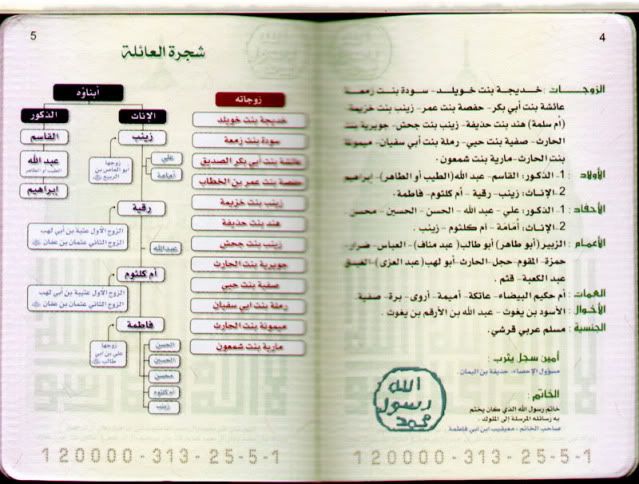 4
الزوجات : خديجة بنت خويلد - سودة بنت زمعة
عائشة بنت أبي بكر - حفصة بنت عمر - زينب بنت خزيمة
(أم سلمة) هند بنت حذيفة - زينب بنت جحش - جويرية بنت
الحارث - صفية بنت حيي - رملة بنت أبي سفيان - ميمونة
بنت الحارث - مارية بنت شمعون .
الأولاد : 1 - الذكور : القاسم - عبد الله (الطيب أو الطاهر) - إبراهيم
2 - الإناث : زينب - رقية - أم كلثوم - فاطمة .
الأحفاد : 1 - الذكور : علي - عبد الله - الحسن - الحسين - محسن
2 - الإناث : أمامة - أم كلثوم - زينب .
الأعمام : الزبير (أبو طاهر) أبو طالب (عبد مناف) - العباس - ضرار
حمزة - المقوم - حجل - الحارث - أبو لهب (عبد العزى) - الغيدق
عبد الكعبة - قثم .
العمات : أم حكيم البيضاء - عاتكة - أميمة - أروى - برة - صفية .
الأخوال : الأسود بن يغوث - عبد الله بن الأرقم بن يغوث .
الجنسية : مسلم عربي قرشي .
أمين سجل يثرب :
مسؤول الإحصاء : حذيفة بن اليمان .
الخاتم :
خاتم رسول الله الذي كان يختم
به رسائله المرسلة إلى الملوك .
صاحب الخاتم : معيقيب ابن أبي فاطمة
الله
رسول
محمد
120000-313-25-5-1
5
شجرة العائلة
زوجاته
خديجة بنت خويلد
سودة بنت زمعة
عائشة بنت أبي بكر الصديق
حفصة بنت عمر بن الخطاب
زينب بنت خزيمة
هند بنت حذيفة
زينب بنت جحش
جويرية بنت الحارث
صفية بنت حيي
رملة بنت أبي سفيان
ميمونة بنت الحارث
مارية بنت شمعون
أبناؤه
الإناث
الذكور
زينب
زوجها
أبو العاص بن
الربيع
علي
أمامة
رقية
الزوج الأول عتبة بن أبي لهب
الزوج الثاني عثمان بن عفان
عبدالله
أم كلثوم
الزوج الأول عتيبة بن أبي لهب
الزوج الثاني عثمان بن عفان
فاطمة
زوجها
علي بن أبي
طالب
الحسن
الحسين
محسن
أم كلثوم
زينب
القاسم
عبد الله
(الطيب أو الطاهر)
إبراهيم
120000-313-25-5-1